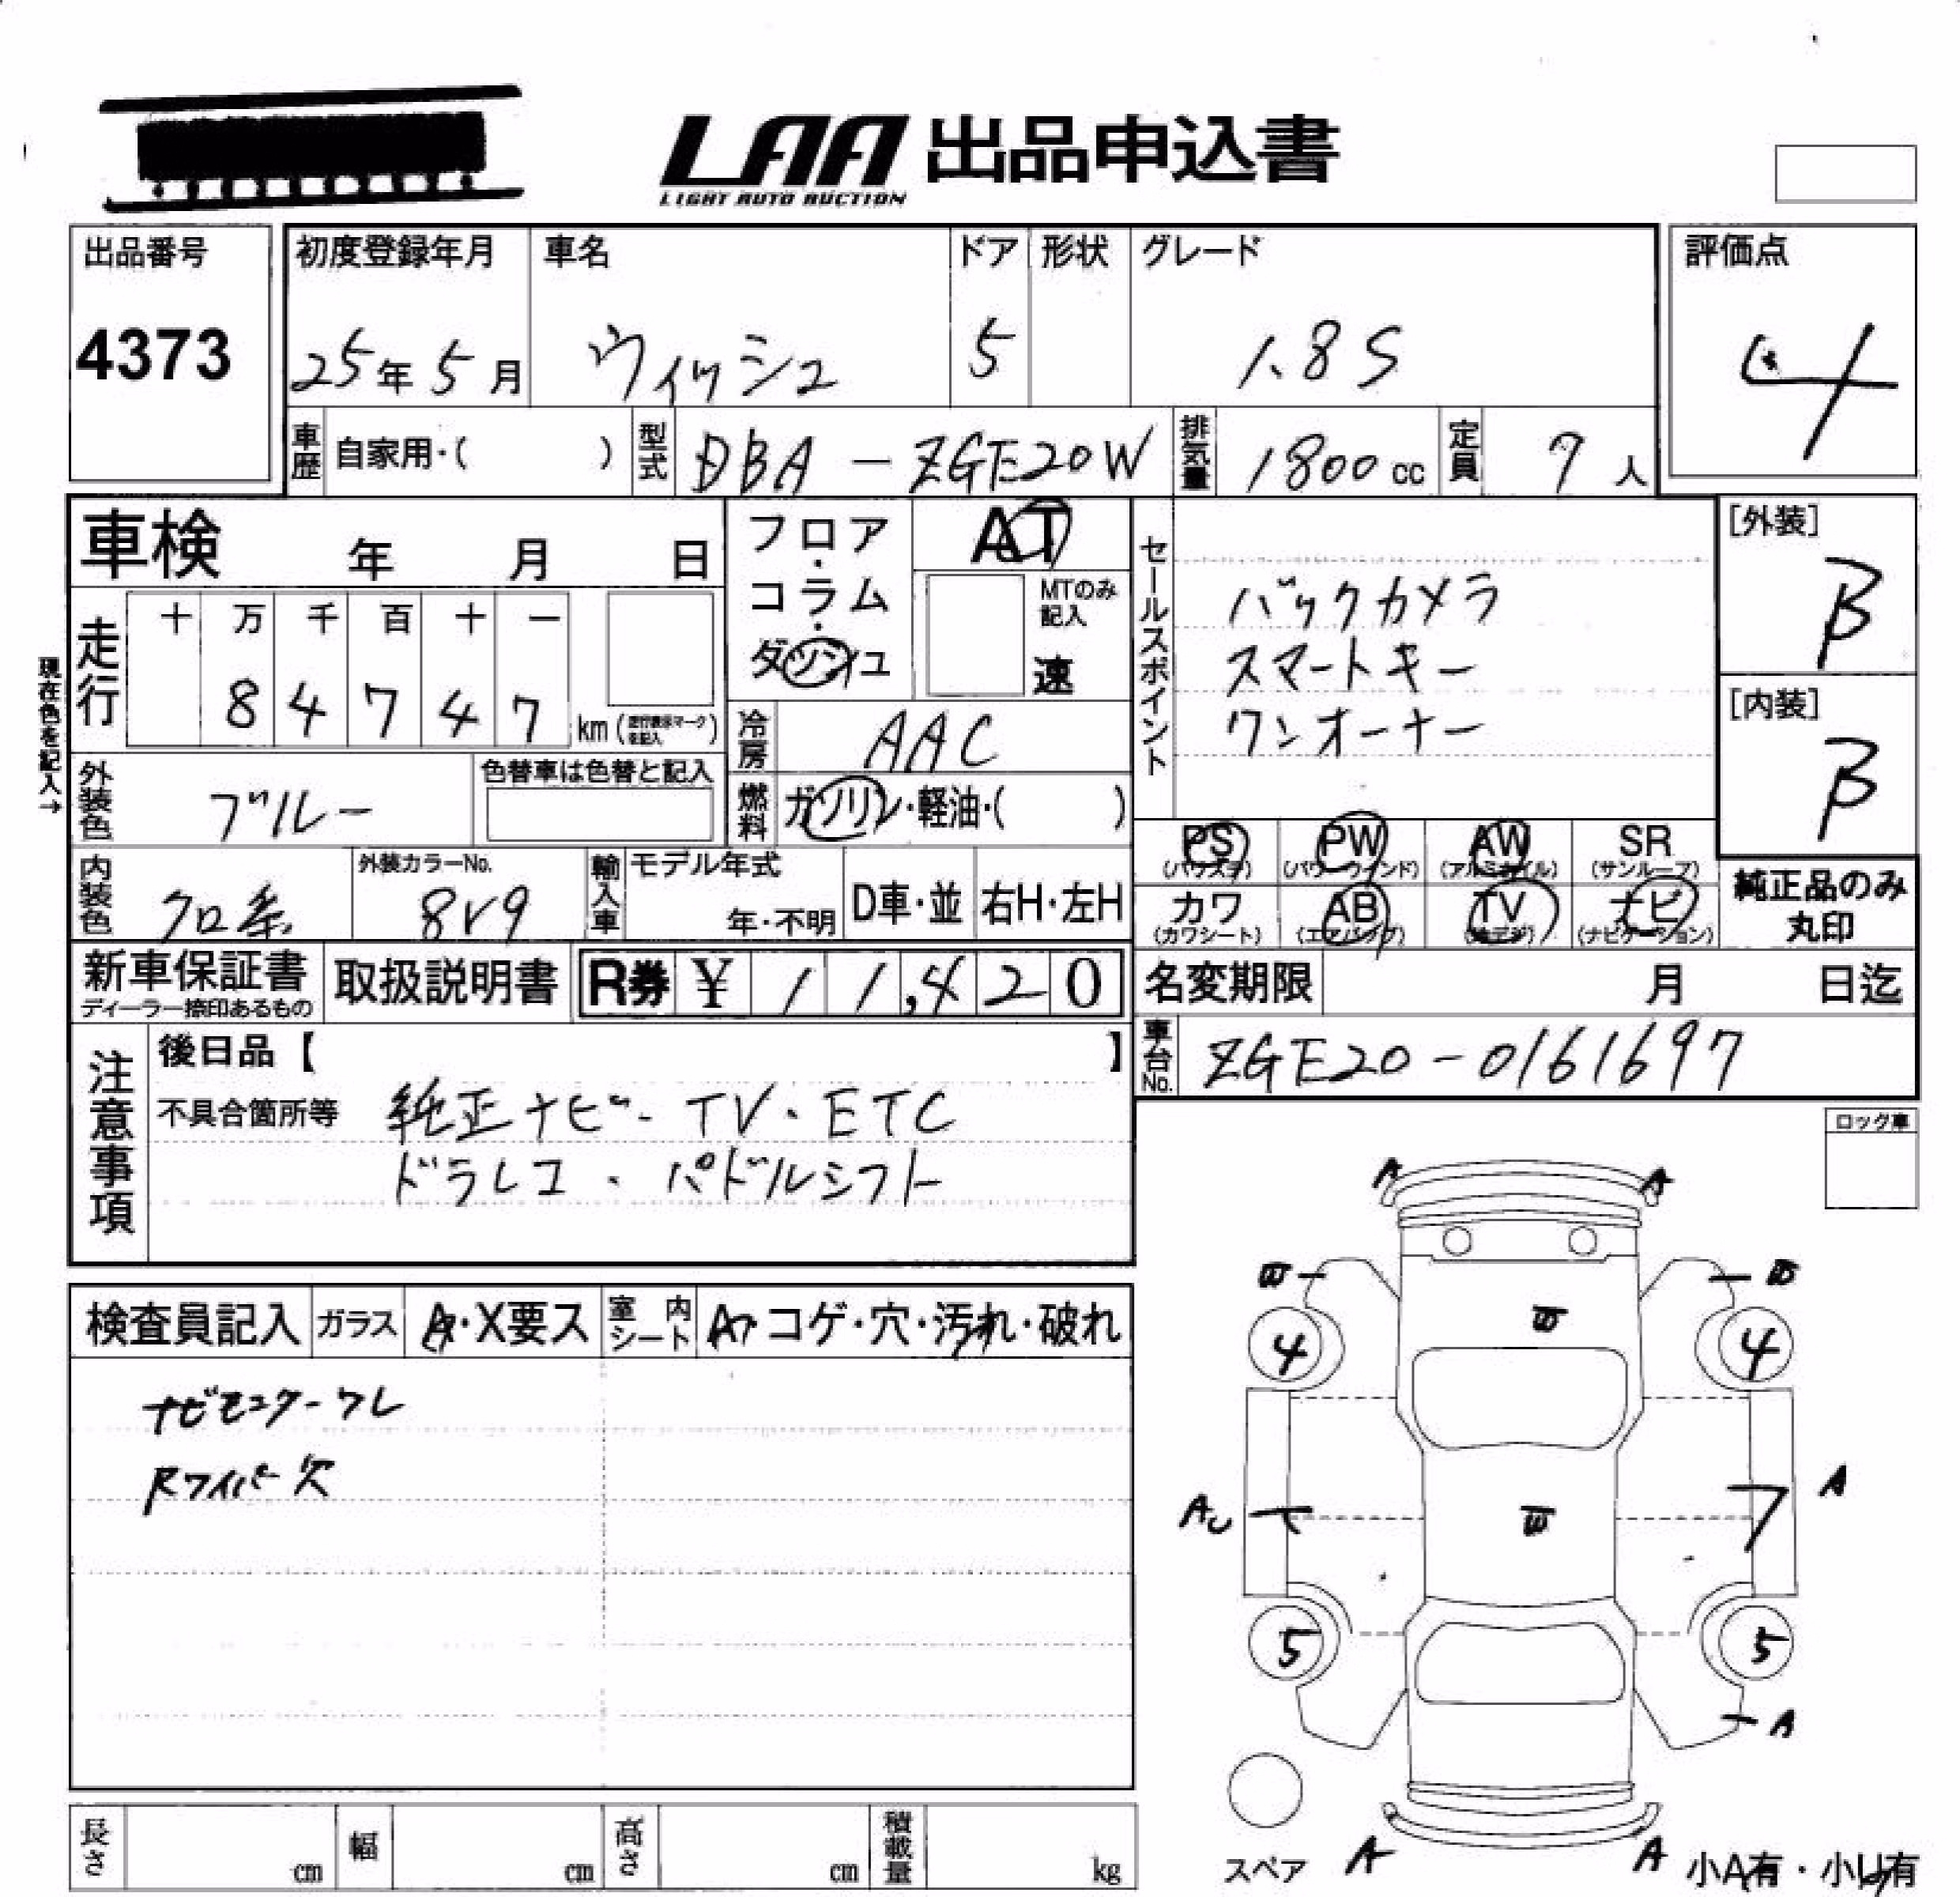 LAA 出品申込書
LIGHT AUTO AUCTION
出品番号
4373
初度登録年月
25年 5月
車名
ウィッシュ
ドア
5
形状
グレード
1.8S
評価点
4
車歴
自家用・( )
型式
DBA-ZGE20W
排気量
1800cc
定員
7人
車検 年 月 日
フロア・コラム・ダッシュ
AT
MTのみ記入
速
セールスポイント
バックカメラ
スマートキー
ワンオーナー
[外装]
B
[内装]
B
現在色を記入→
走行
十 万 千 百 十 一
8 4 7 4 7 km(走行表示マークを記入)
冷房
AAC
外装色
ブルー
色替車は色替と記入
燃料
ガソリン・軽油・( )
PS (パワステ)
PW (パワーウィンド)
AW (アルミホイル)
SR (サンルーフ)
内装色
クロ系
外装カラーNo.
8V9
輸入車
モデル年式
年・不明
D車・並
右H・左H
カワ (カワシート)
AB (エアバッグ)
TV (地デジ)
ナビ (ナビゲーション)
純正品のみ丸印
新車保証書
ディーラー捺印あるもの
取扱説明書
R券 ¥ 1 1,4 2 0
名変期限 月 日迄
車台No.
ZGE20-0161697
注意事項
後日品【 】
不具合箇所等
純正ナビ・TV・ETC
ドラレコ・パドルシフト
ロック車
検査員記入
ガラス
A・X要ス
室内シート
コゲ・穴・汚れ・破れ
ナビモニターワレ
Rワイパー欠
A A
W W
W
4 4
A
AU
W
5 5
A
A A
スペア
小A有・小U有
長さ cm
幅 cm
高さ cm
積載量 kg